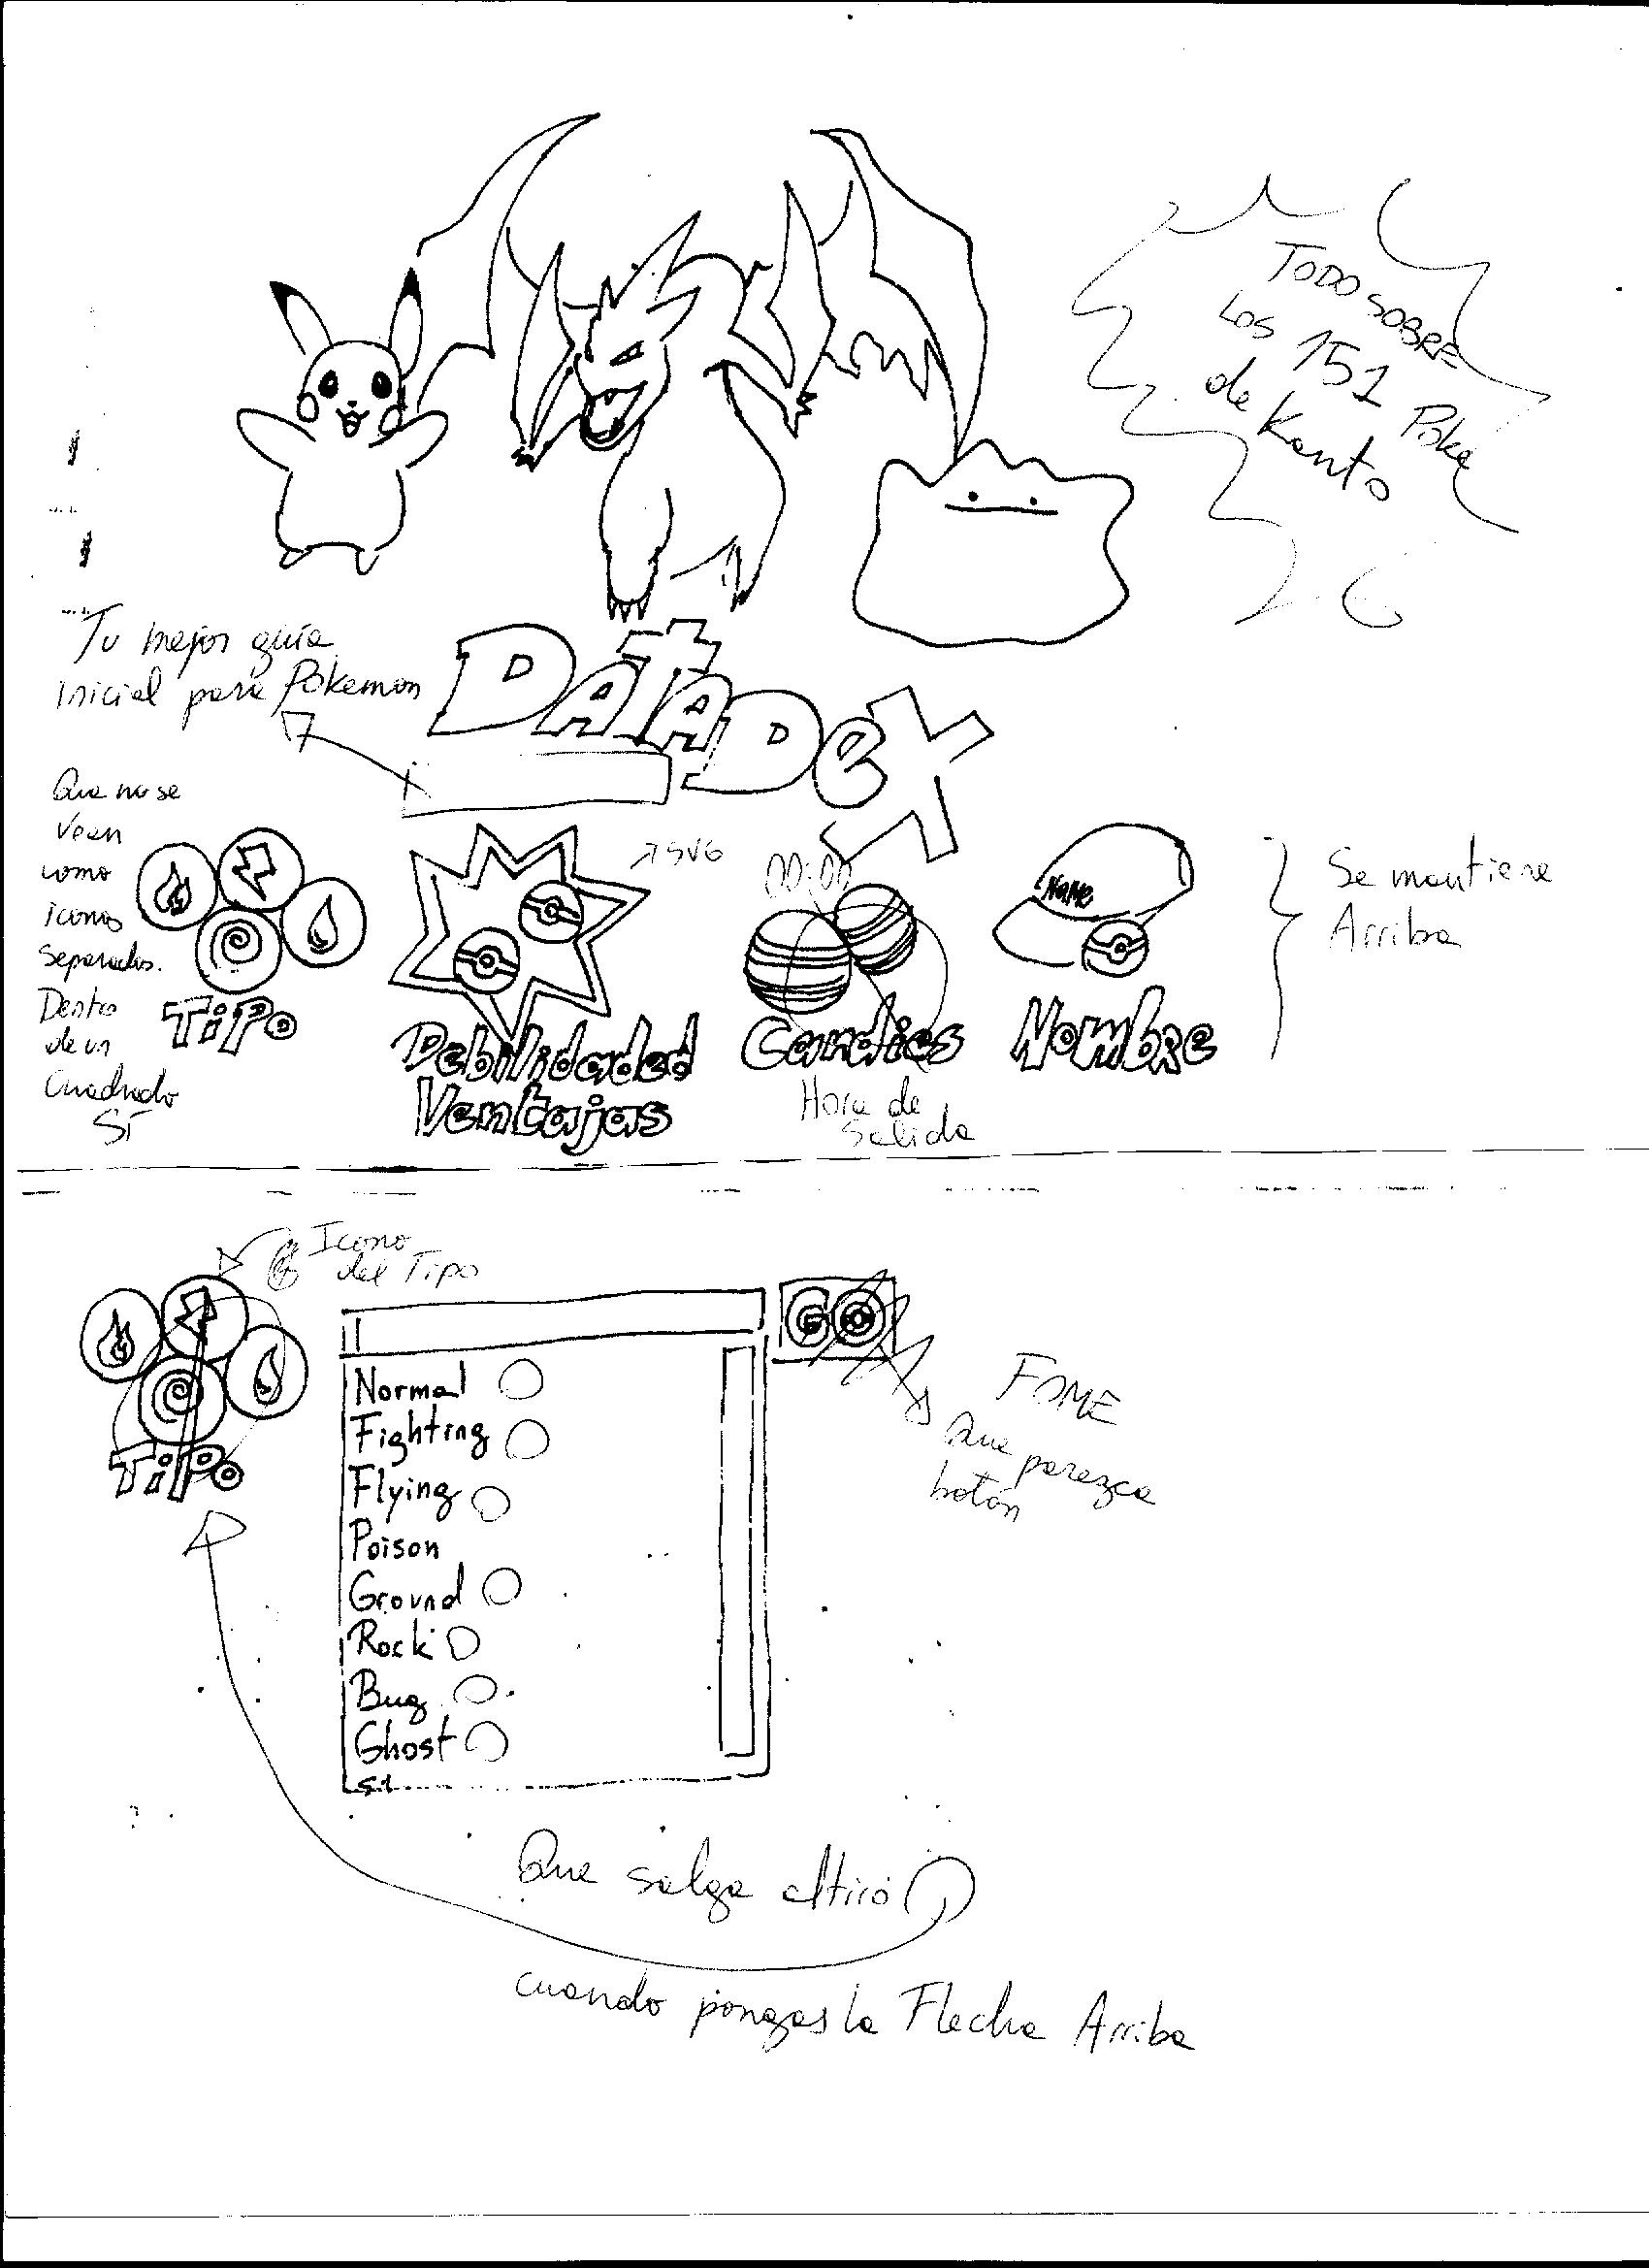 TODO SOBRE
Los 151 Poke
de Kanto
Tu mejor guía
inicial para Pokemon
DATADEX
Que no se
vean
como
iconos
separados.
Dentro
de un
Cuadrado
SÍ
TiPo
SVG
Debilidaded
Ventajas
00:00
Candies
Hora de
Salida
NAME
Nombre
Se mantiene
Arriba
Icono
del Tipo
TiPo
GO
FOME
Que parezca
botón
Normal
Fighting
Flying
Poison
Ground
Rock
Bug
Ghost
Que salga altiro
cuando pongas la Flecha Arriba